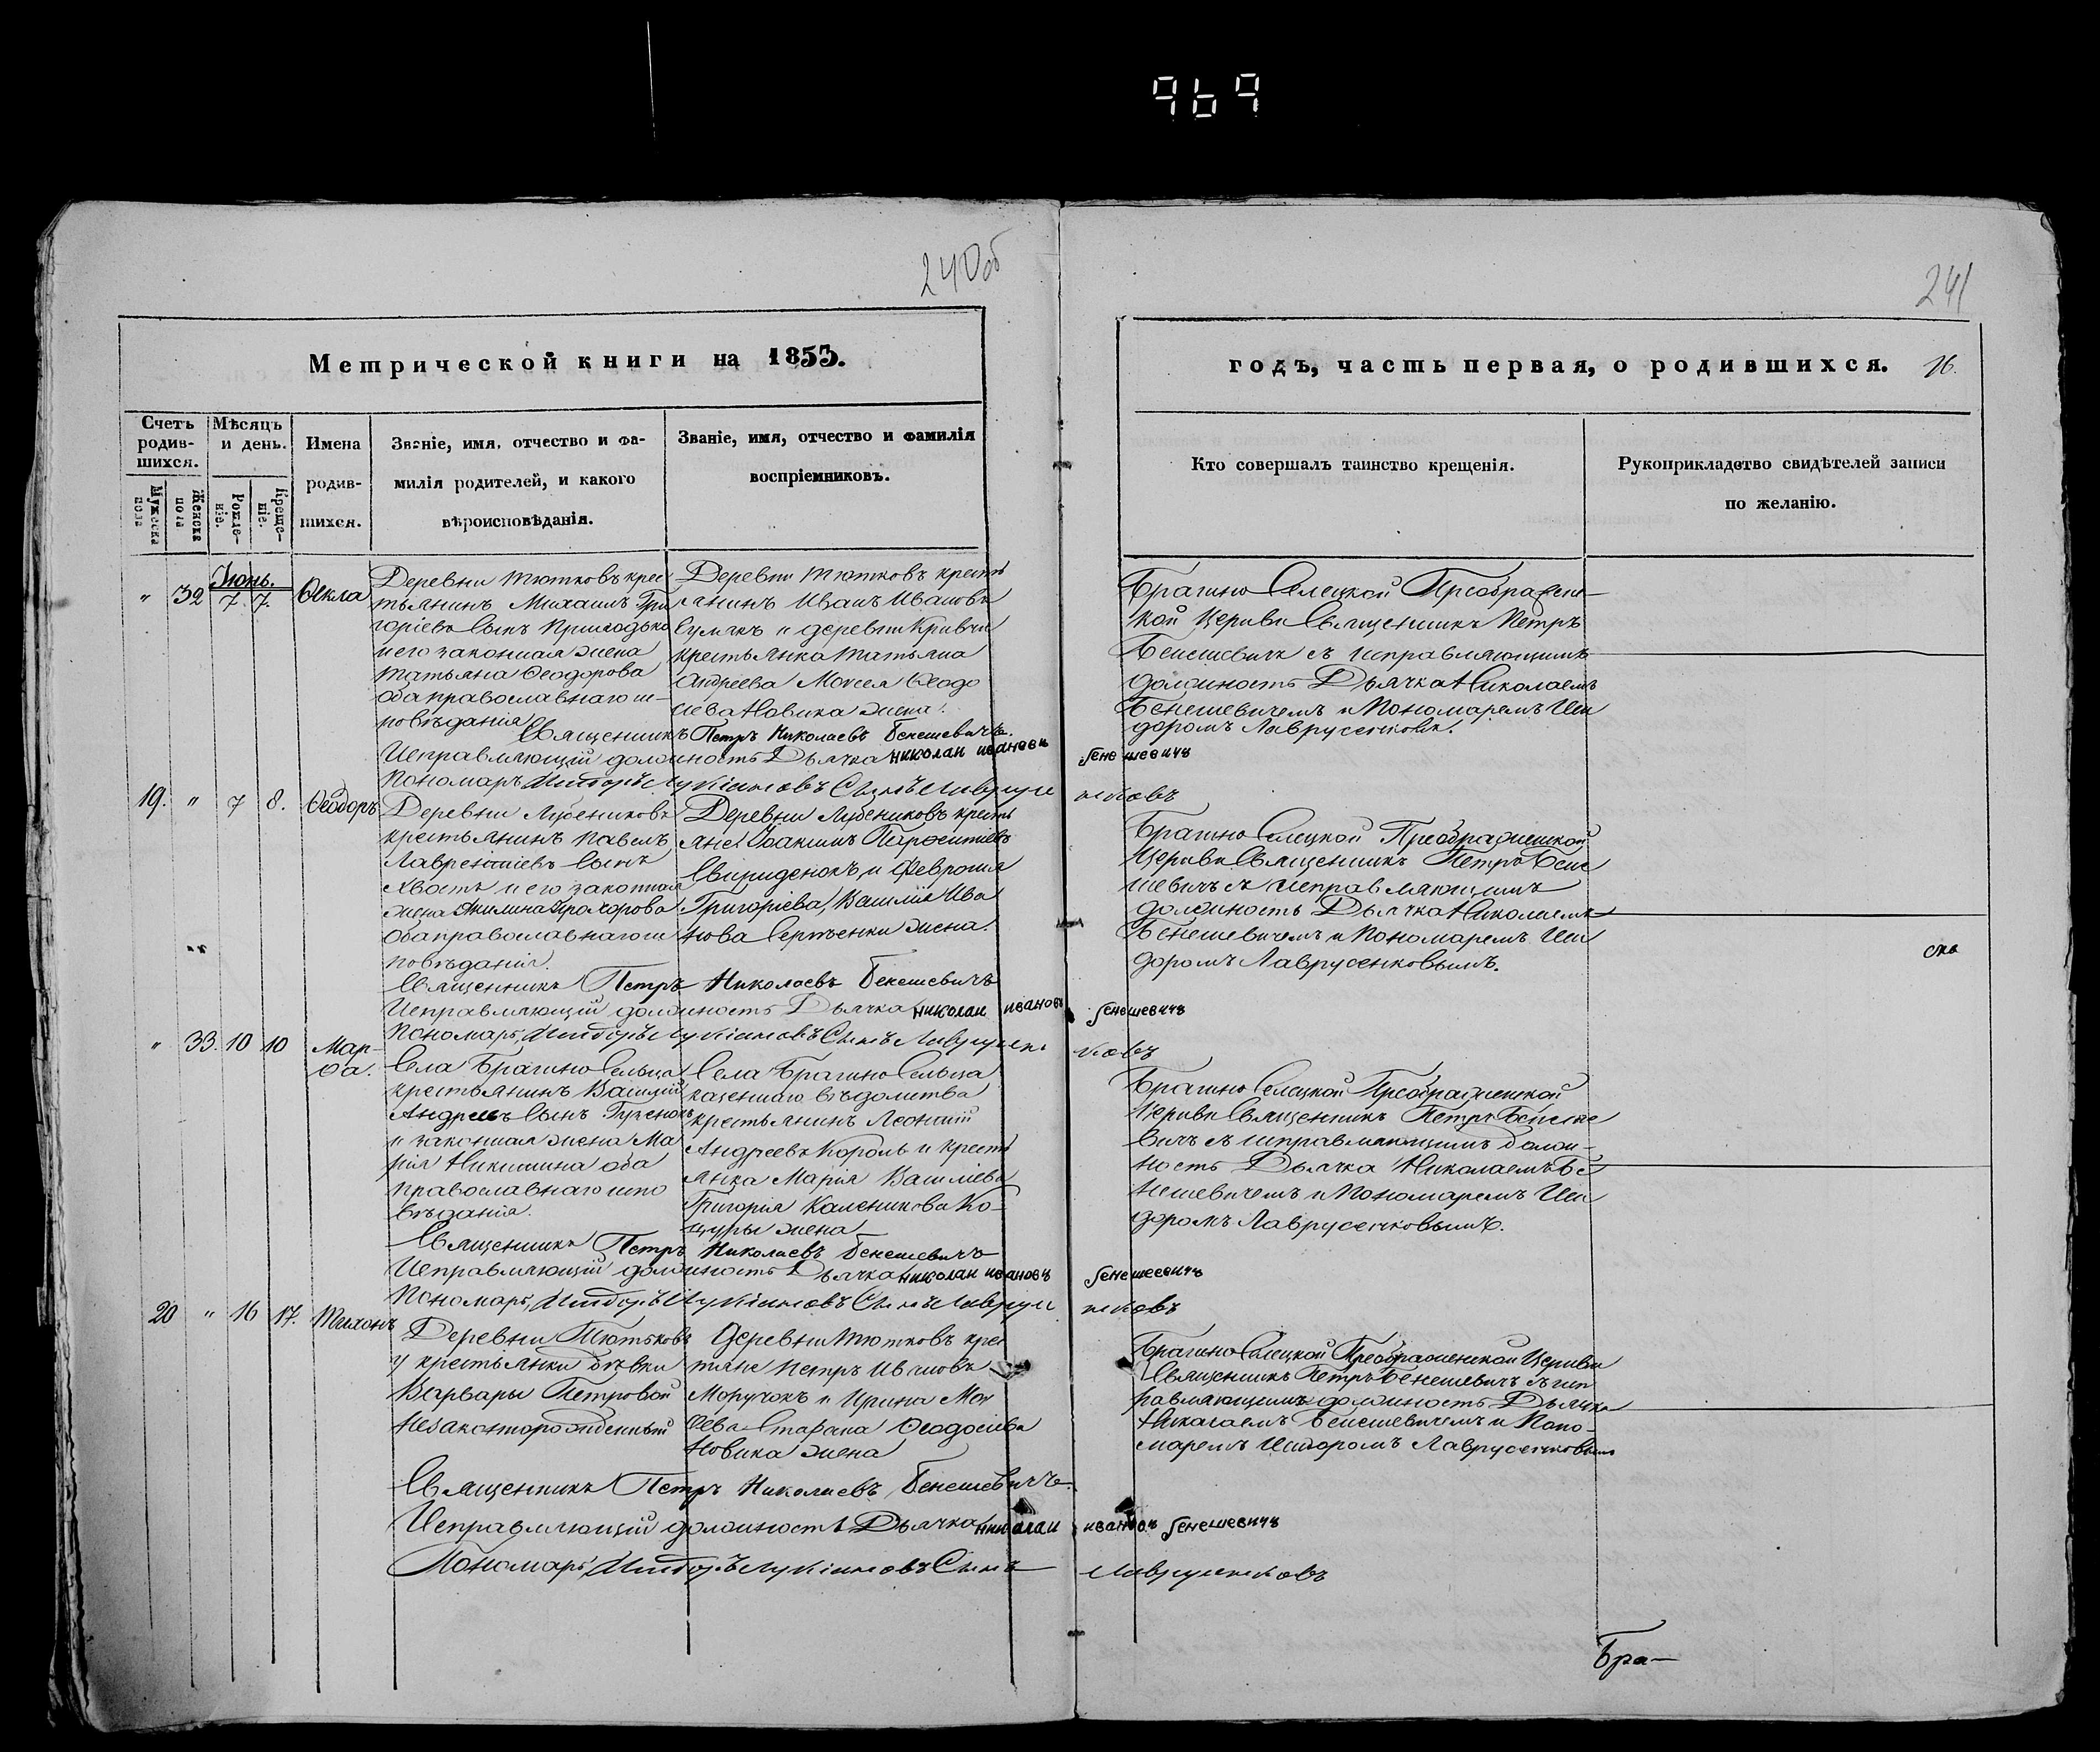 969
240об
241
Метрической книги на 1853.
годъ, часть первая, о родившихся. 16.
Счетъ родив-шихся.
Мужеска пола
Женска пола
Мѣсяцъ и день.
Рожде-ніе.
Креще-ніе.
Имена
родив-
шихся.
Званіе, имя, отчество и фа-
милія родителей, и какого
вѣроисповѣданія.
Званіе, имя, отчество и фамилія
воспріемниковъ.
Кто совершалъ таинство крещенія.
Рукоприкладство свидѣтелей записи
по желанію.
Іюнь.
" 32 7. 7. Ѳекла
Деревни Тютковъ крес
тьянинъ Михаилъ Гри
горіевъ сынъ Приходько
и его законная жена
Татьяна Ѳеодорова
оба православнаго ис-
повѣданія
Деревни Тютковъ кресть
янинъ Иванъ Ивановъ
Сумакъ и деревни Кривчи
крестьянка Татьяна
Андреева Моисея Ѳеодо
сіева Новика жена.
Брагино Селецкой Преображен-
кой Церкви Священникъ Петръ
Бенешевичъ съ исправляющимъ
должность Дьячка Николаемъ
Бенешевичемъ и Пономаремъ Иси
доромъ Лаврусенковымъ.
Священникъ Петръ Николаевъ Бенешевичъ.
Исправляющій должность Дьячка Николай Ивановъ Бенешевичъ
Пономарь Исидоръ Лукіановъ Сынъ Лаврусенковъ
19. " 7 8. Ѳеодоръ
Деревни Лубениковъ
крестьянинъ Павелъ
Лаврентіевъ Сынъ
Хвость и его законная
жена Акилина Прохорова
Оба православнаго ис
повѣданія.
Деревни Лубениковъ кресть
яне Іоакимъ Парѳентіевъ
Свириденокъ и Феврония
Григоріева, Василія Ива
нова Сергѣенки жена.
Брагино Селецкой Преображенской
Церкви Священникъ Петръ Бене
шевичъ съ исправляющимъ
должность Дьячка Николаемъ
Бенешевичемъ и Пономаремъ Иси
доромъ Лаврусенковымъ.
Священникъ Петръ Николаевъ Бенешевичъ
Исправляющій должность Дьячка Николай Ивановъ Бенешевичъ
Пономарь, Исидоръ Лукіановъ Сынъ Лаврусенковъ
" 33. 10 10 Мар-
ѳа.
Села Брагино Сельца
крестьянинъ Василій
Андреевъ Сынъ Гученокъ
и законная жена Ма
рія Никитина оба
православнаго испо
вѣданія.
Села Брагино Сельца
казеннаго вѣдомства
крестьянинъ Леонтій
Андреевъ Король и кресть
янка Марія Василіева
Григорія Каленикова Ко-
цуры жена
Брагино Селецкой Преображенской
Церкви Священникъ Петръ Бенеше
вичъ съ исправляющимъ долж-
ность Дьячка Николаемъ Бе
нешевичемъ и Пономаремъ Иси
доромъ Лаврусенковымъ.
Священникъ Петръ Николаевъ Бенешевичъ
Исправляющій должность Дьячка Николай Ивановъ Бенешевичъ
Пономарь, Исидоръ Лукіановъ Сынъ Лаврусенковъ
20 " 16 17. Тихонъ
Деревни Тютьковъ
у крестьянки дѣвки
Варвары Петровой
незаконнорожденный
Деревни Тютковъ крес
тяне Петръ Ивановъ
Моручокъ и Ирина Мои
сѣева Стефана Ѳеодосіева
Новика жена
Брагино Селецкой Преображенской Церкви
Священникъ Петръ Бенешевичъ съ исп
равляющимъ должность Дьячка
Николаемъ Бенешевичемъ и Поно-
маремъ Исидоромъ Лаврусенковымъ
Священникъ Петръ Николаевъ Бенешевичъ.
Исправляющій должность Дьячка Николай Ивановъ Бенешевичъ
Пономарь, Исидоръ Лукіановъ Сынъ Лаврусенковъ
Бра-